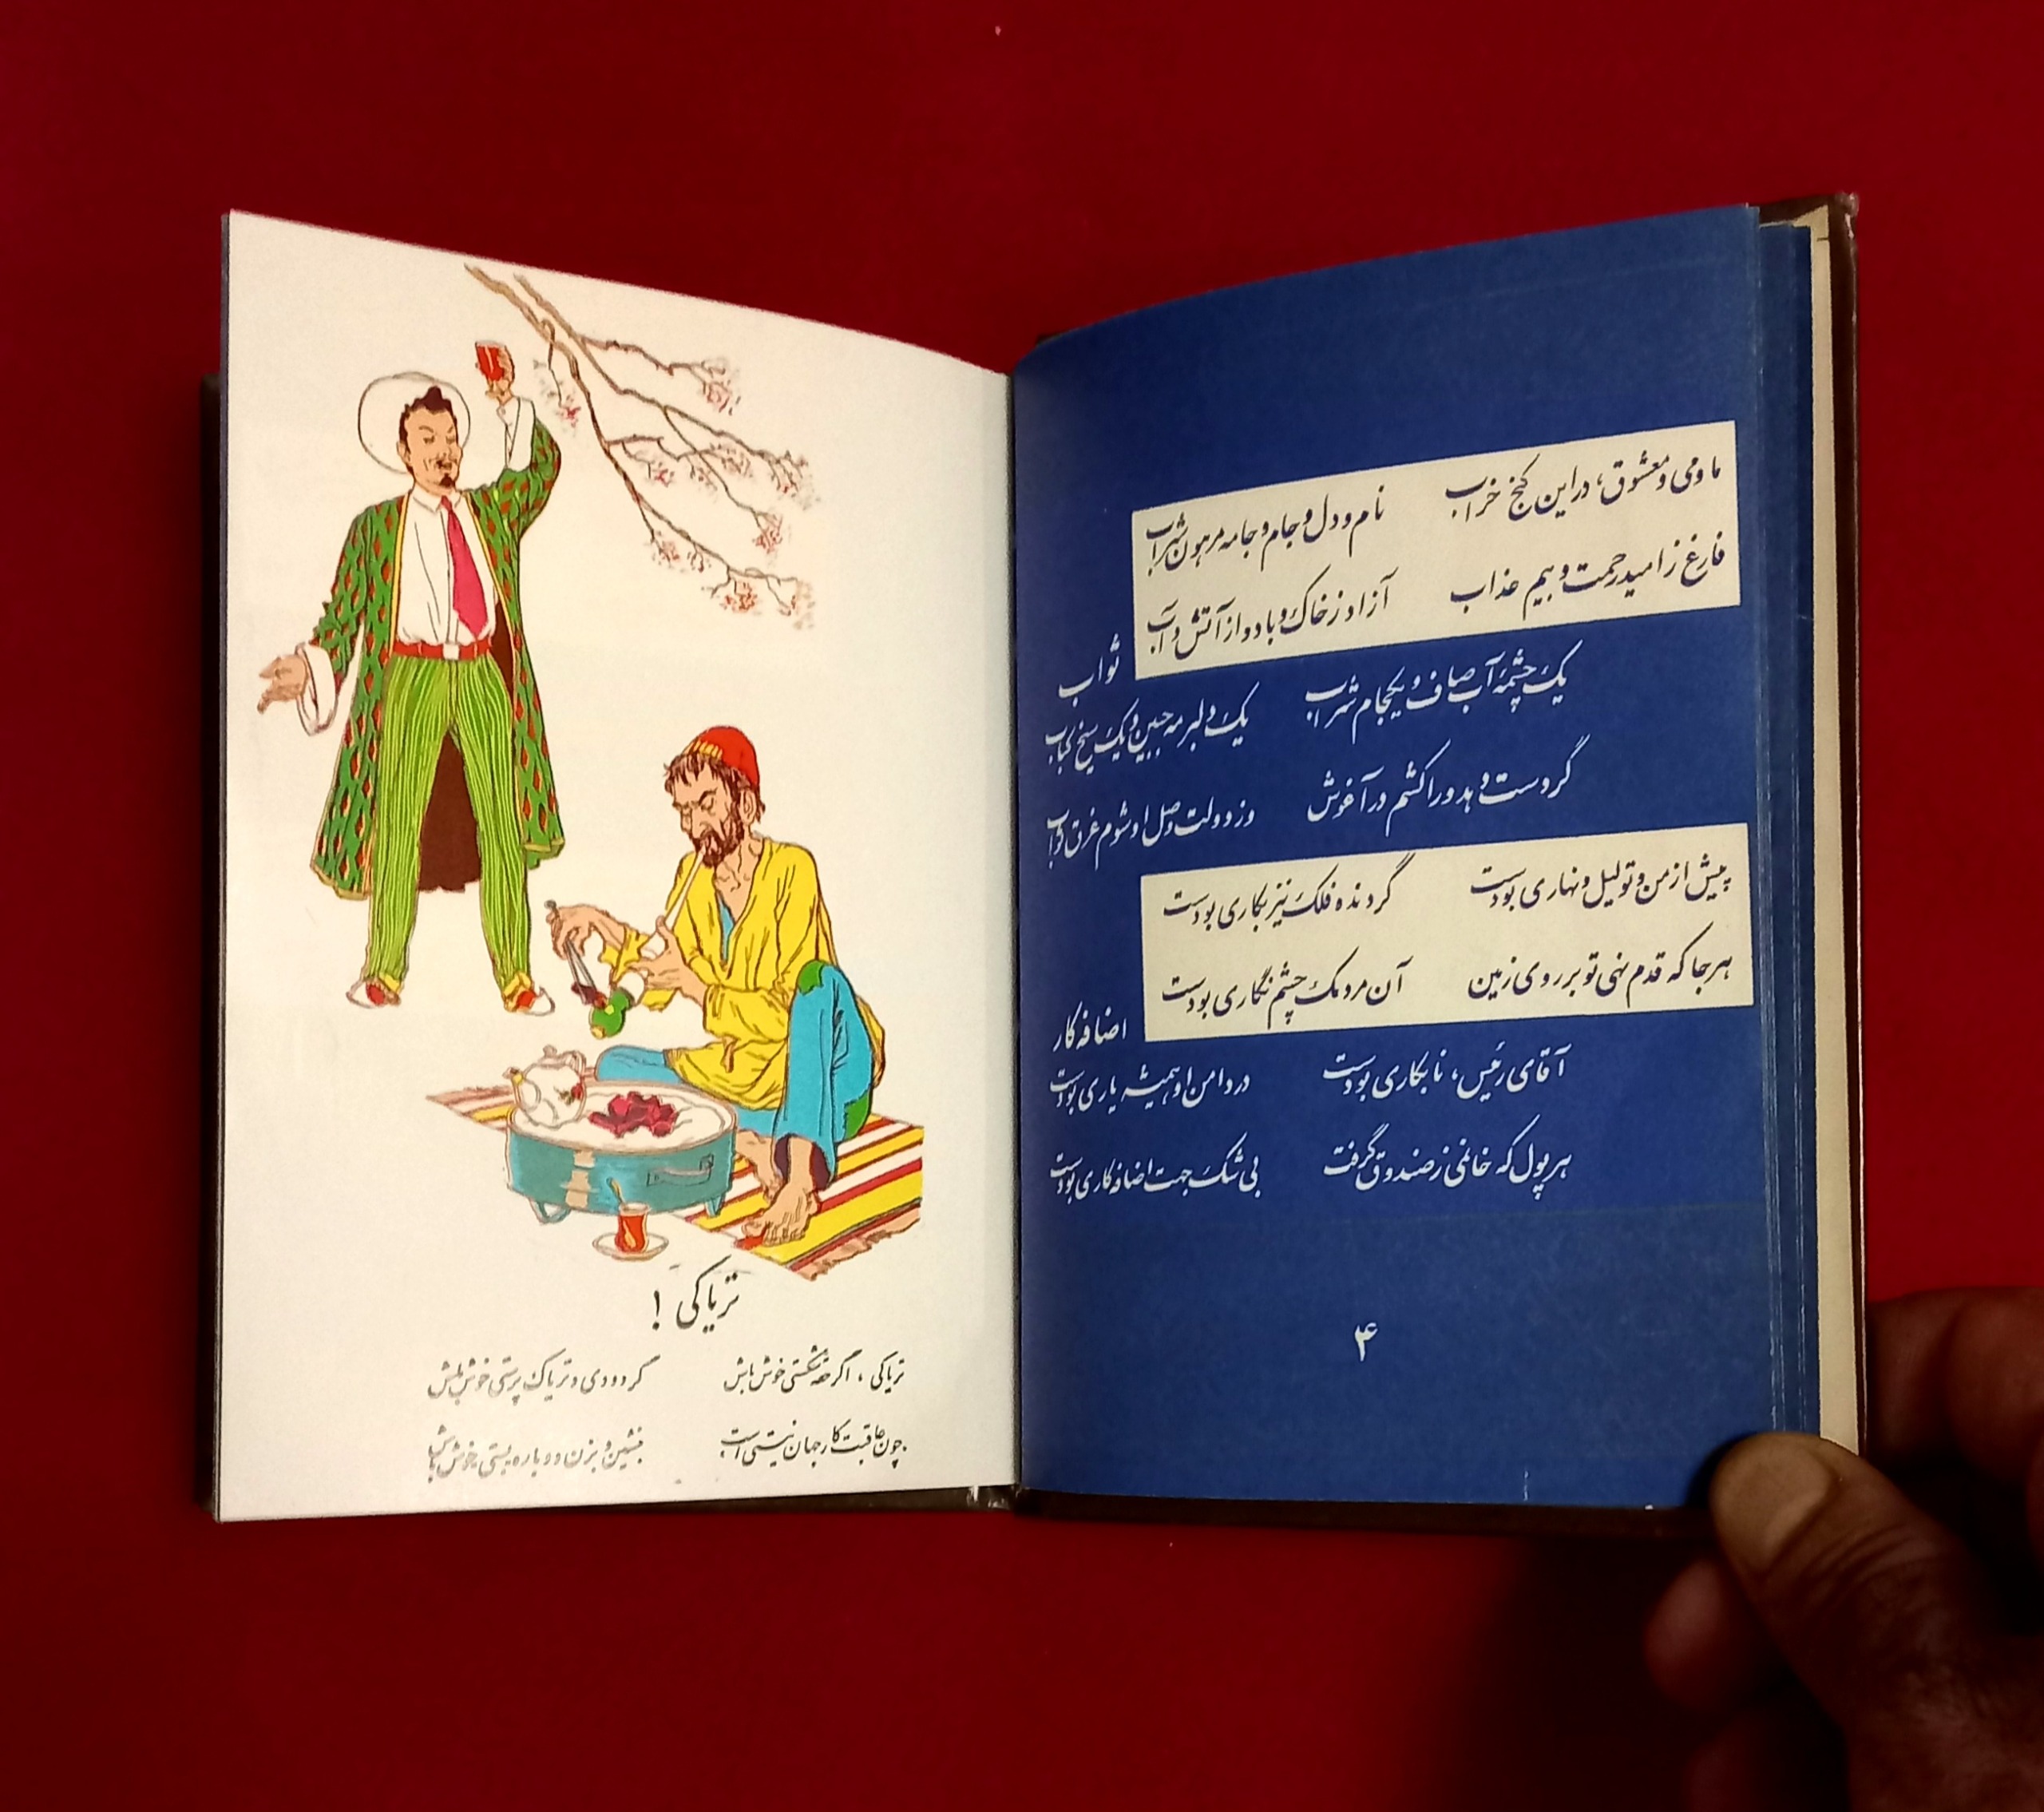 ما و می و معشوق، در این کنج خراب نام و دل و جام و جامه مرهون شراب
فارغ ز امید رحمت و بیم عذاب آزاد ز خاک و باد و از آتش و آب
ثواب
یک چشمهٔ آب صاف و یکجام شراب یک دلبر مه جبین و یک سیخ کباب
گر دست دهد ورا کشم در آغوش وز دولت وصل او شوم غرق ثواب
پیش از من و تو لیل و نهاری بودست گردنده فلک نیز بکاری بودست
هر جا که قدم نهی تو بر روی زمین آن مردمک چشم نگاری بودست
اضافه کار
آقای رئیس، نابکاری بودست در دامن او همیشه یاری بودست
هر پول که خانمی ز صندوق گرفت بی شک جهت اضافه کاری بودست
۴
تریاکی !
تریاکی، اگر حقه شکستی خوش باش گر دودی و تریاک پرستی خوش باش
چون عاقبت کار جهان نیستی است بنشین و بزن دوباره بستی خوش باش